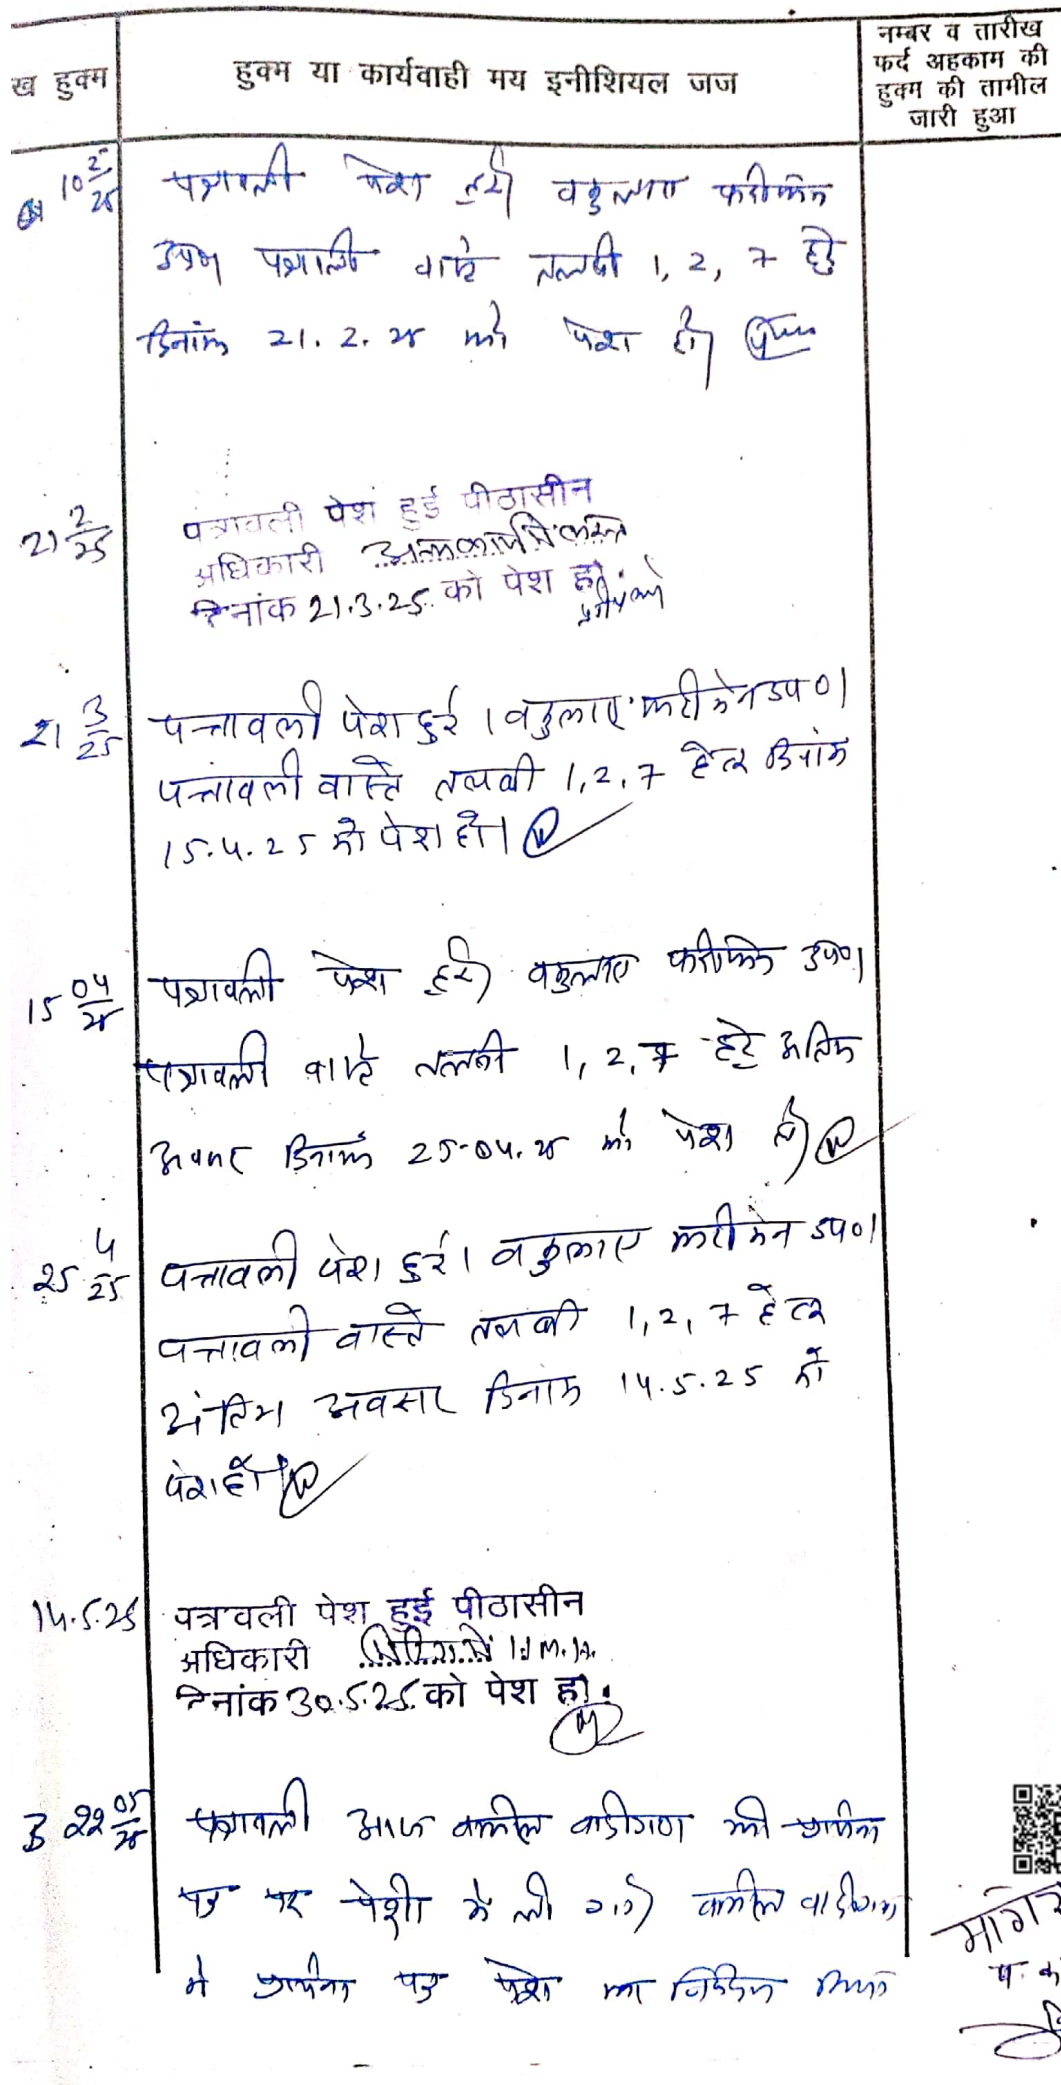 नम्बर व तारीख
फर्द अहकाम की
हुक्म की तामील
जारी हुआ
ख हुक्म
हुक्म या कार्यवाही मय इनीशियल जज
10 2/25 पत्रावली पेश हुयी वकुलाए फरीकैन
उप० पत्रावली वास्ते तलबी 1, 2, 7 हेतु
दिनांक 21.2.25 को पेश हो
21 2/25 पत्रावली पेश हुई पीठासीन
अधिकारी
दिनांक 21.3.25. को पेश हो.
21 3/25 पत्रावली पेश हुई । वकुलाए फरीकेन उप०।
पत्रावली वास्ते तलबी 1,2,7 हेतु दिनांक
15.4.25 को पेश हो।
15 04/25 पत्रावली पेश हुयी वकुलाए फरीकैन उप०।
पत्रावली वास्ते तलबी 1, 2, 7 हेतु अंतिम
अवसर दिनांक 25-04.25 को पेश हो
25 4/25 पत्रावली पेश हुई। वकुलाए फरीकेन उप०।
पत्रावली वास्ते तलबी 1,2,7 हेतु
अंतिम अवसर दिनांक 14.5.25 को
पेश हो।
14.5.25 पत्रवली पेश हुई पीठासीन
अधिकारी
दिनांक 30.5.25. को पेश हो.
22 05/25 पत्रावली आज वकील वादीगण की प्रार्थना
पत्र पर पेशी में ली गयी वकील वादीगण
ने प्रार्थना पत्र पेश कर निवेदन किया